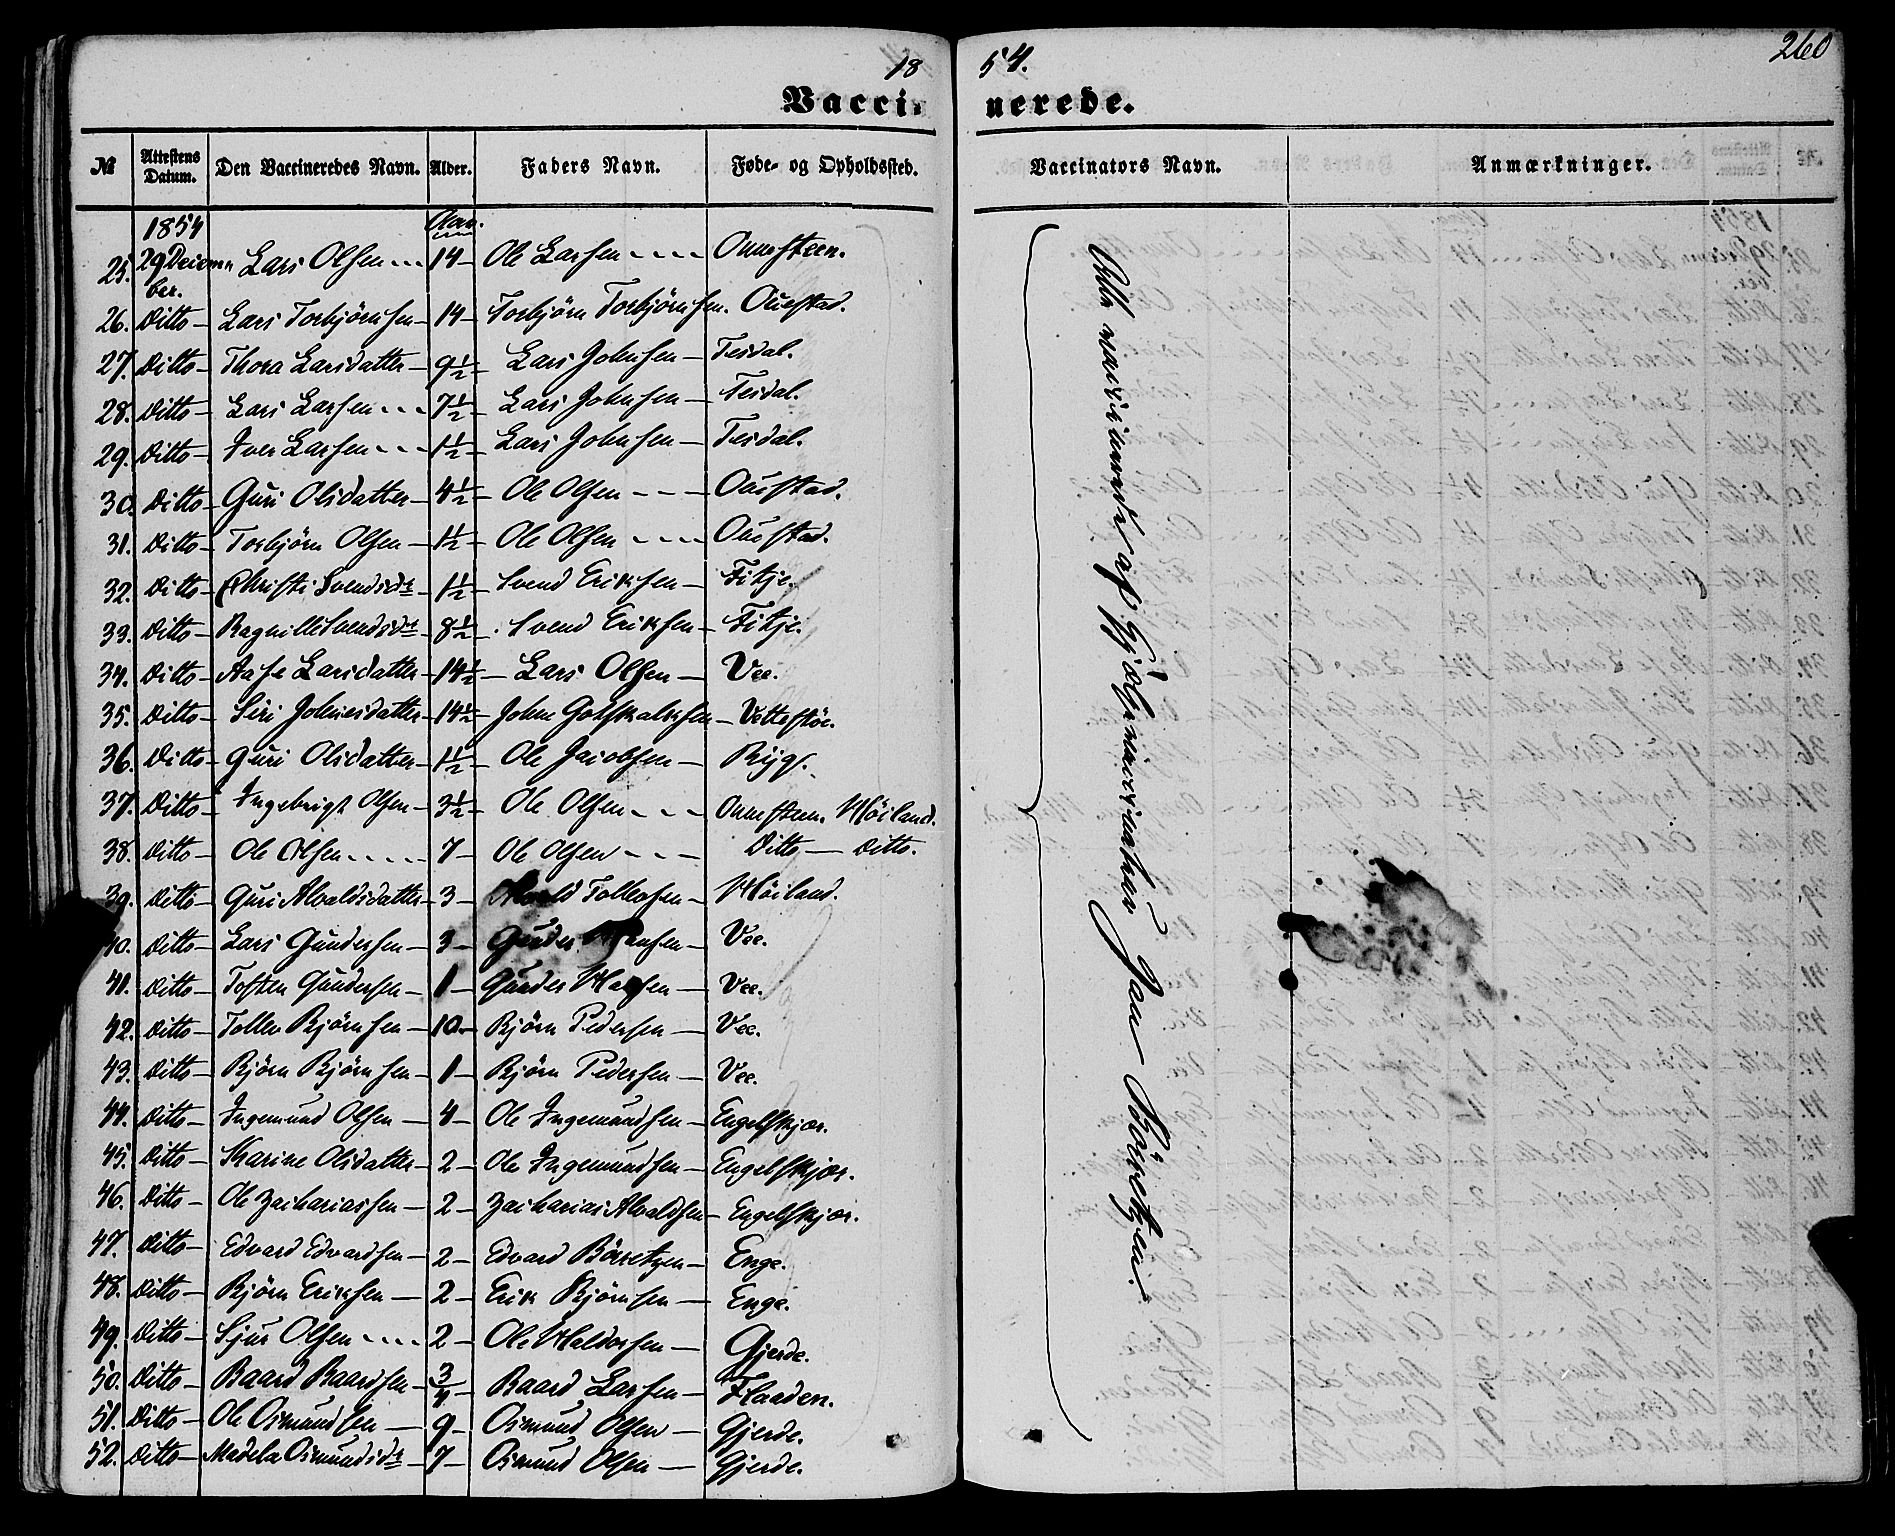 18 54. 260
Vacci- nerede.
№ Attestens Datum. Den Vaccineredes Navn. Alder. Faders Navn. Føde- og Opholdssted. Vaccinators Navn. Anmærkninger.
1854 Aar.
25. 29 December. Lars Olsen 14 Ole Larsen
26. Ditto Lars Torbjörnsen 14 Torbjörn Torbjörnsen. Ouestad.
27. Ditto Thora Larsdatter 9½ Lars Johnsen Tesdal.
28. Ditto Lars Larsen 7½ Lars Johnsen Tesdal.
29. Ditto Iver Larsen 1½ Lars Johnsen Tesdal.
30. Ditto Guri Olsdatter 4½ Ole Olsen Ouestad.
31. Ditto Torbjörn Olsen 1½ Ole Olsen Ouestad.
32. Ditto Christi Svendsdr 1½ Svend Eriksen Fitje.
33. Ditto Ragnille Svendsdr 8½ Svend Eriksen Fitje.
34. Ditto Aase Larsdatter 14½ Lars Olsen Vee.
35. Ditto Siri Johnesdatter 14½ Johne Gotskalksen Vettestöe.
36. Ditto Guri Olsdatter 1½ Ole Jacobsen Ryg.
37. Ditto Ingebrigt Olsen 3½ Ole Olsen Höiland.
38. Ditto Ole Olsen 7 Ole Olsen Ditto ditto.
39. Ditto Guri Alvaldsdatter 3 Alvald Tollefsen Höiland.
40. Ditto Lars Gundersen 3 Gunder Hansen Vee.
41. Ditto Tosten Gundersen 1 Gunder Hansen Vee.
42. Ditto Tollev Björnsen 10 Björn Pedersen Vee.
43. Ditto Björn Björnsen 1 Björn Pedersen Vee.
44. Ditto Ingemund Olsen 4 Ole Ingemundsen Engelskjær.
45. Ditto Karine Olsdatter 2 Ole Ingemundsen Engelskjær.
46. Ditto Ole Zachariassen 2 Zacharias Alvaldsen Engelskjær.
47. Ditto Edvard Edvardsen 2 Edvard Börretzen Enge.
48. Ditto Björn Eriksen 2 Erik Björnsen Enge.
49. Ditto Sjur Olsen 2 Ole Haldorsen Gjerde.
50. Ditto Baard Baardsen ¾ Baard Larsen Flaaden.
51. Ditto Ole Osmundsen 9 Osmund Olsen Gjerde.
52. Ditto Madela Osmundsdr 7 Osmund Olsen Gjerde.
Alle vaccinerede af Hjælpevaccinatren Jan Börretzen.